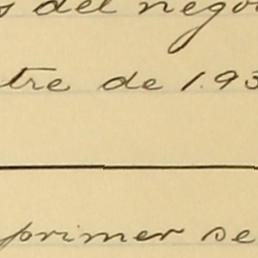 s del nego
tre de 1.93
primer se